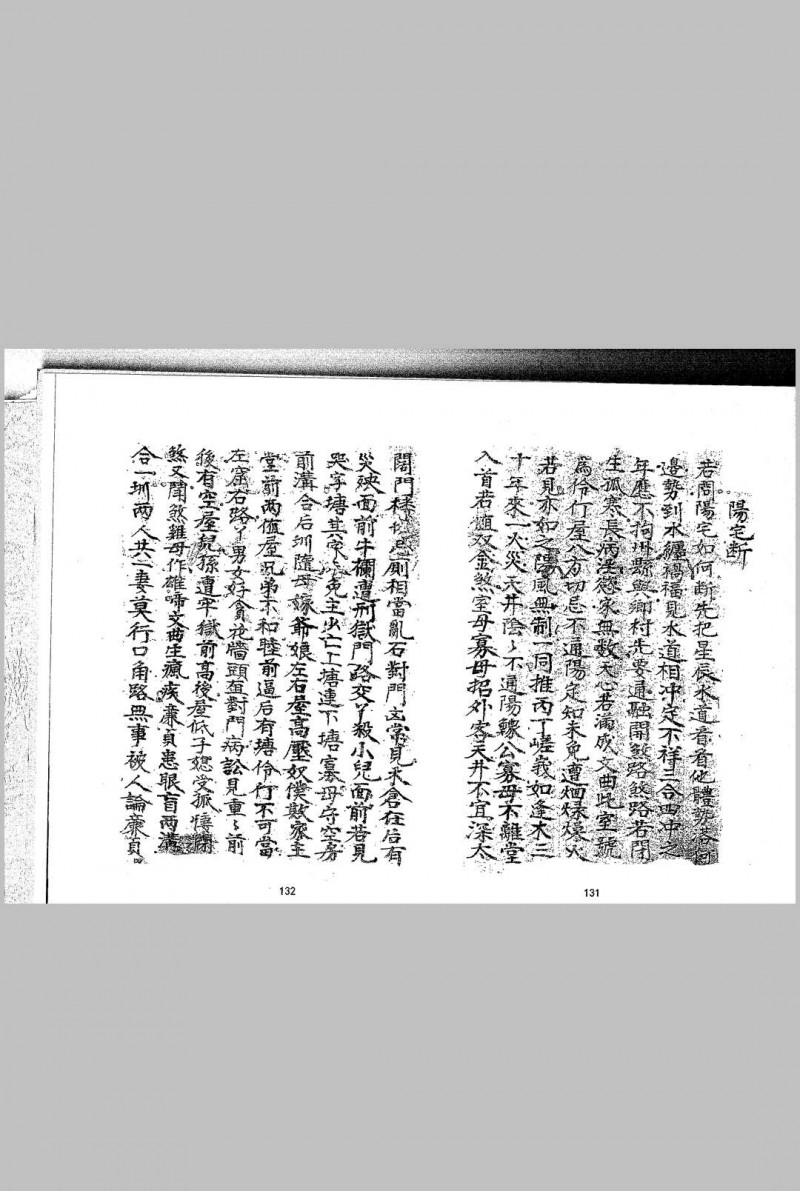 陽宅断
若問陽宅如何断先把星辰水道看看他體勢落何
邊勢到水纏禍福見水道相冲定不祥三合四冲之
年應不拘州縣與鄉村先要通融開煞路煞路若閉
生孤寒長病淫慾家無数天心若滿成文曲此室號
為伶仃屋八方切忌不通陽定知未免遭烟㷛火
若見亦如之陽風無制一同推丙丁嗟我如逢木三
十年來一火災天井陰〻不通陽鰥公寡母不離堂
入首若值双金煞室母寡母招外客天井不宜深太
131
闊門樓切忌厠相當亂石對門文常見禾倉在后有
災殃面前牛欄遭刑獄門路交丫殺小兒面前若見
哭字塘其家〻免主少亡上塘連下塘寡母守空房
前溝合后圳隨母嫁爺娘左右屋高壓奴僕欺家主
堂前兩值屋兄弟不和睦前逼后有塘伶仃不可當
左窟右路丫男女好貪花牆頭並對門病訟見重〻前
後有空屋兒孫遭牢獄前高後屋低子媳受孤悽
煞又開煞雞母作雄啼文曲生瘋疾廉貞患眼盲两溝
合一圳两人共一妻莫行口角路無事被人論廉貞
132